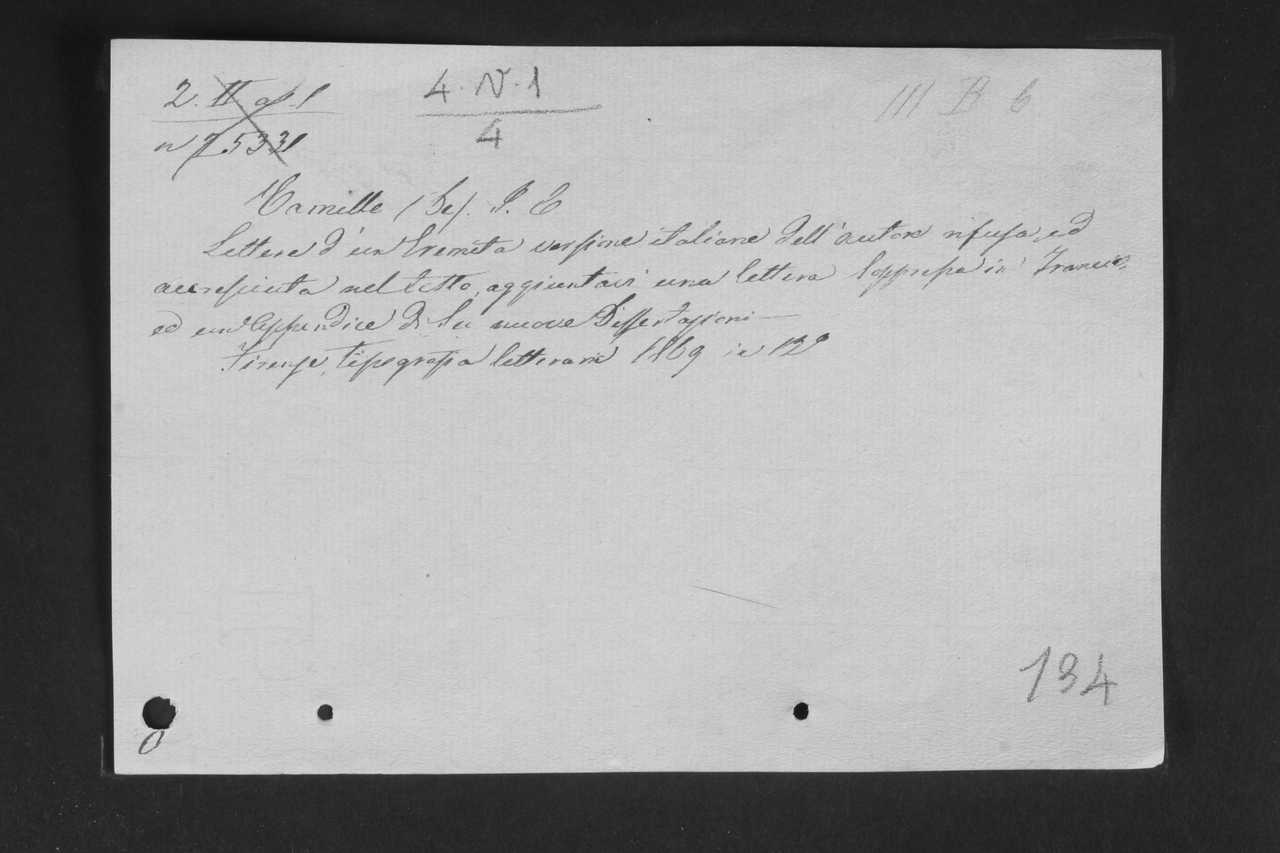 2. II
4. N. 1
III B 6
n 7533
4
Camille (De). P. E
Lettere d'un Eremita versione italiana dell'autore rifusa, ed
accresciuta nel tutto, aggiuntavi una lettera in
ed un'Appendice di Sei nuove Dissertazioni —
Firenze, tipografia letteraria 1869 in 12º
134
0